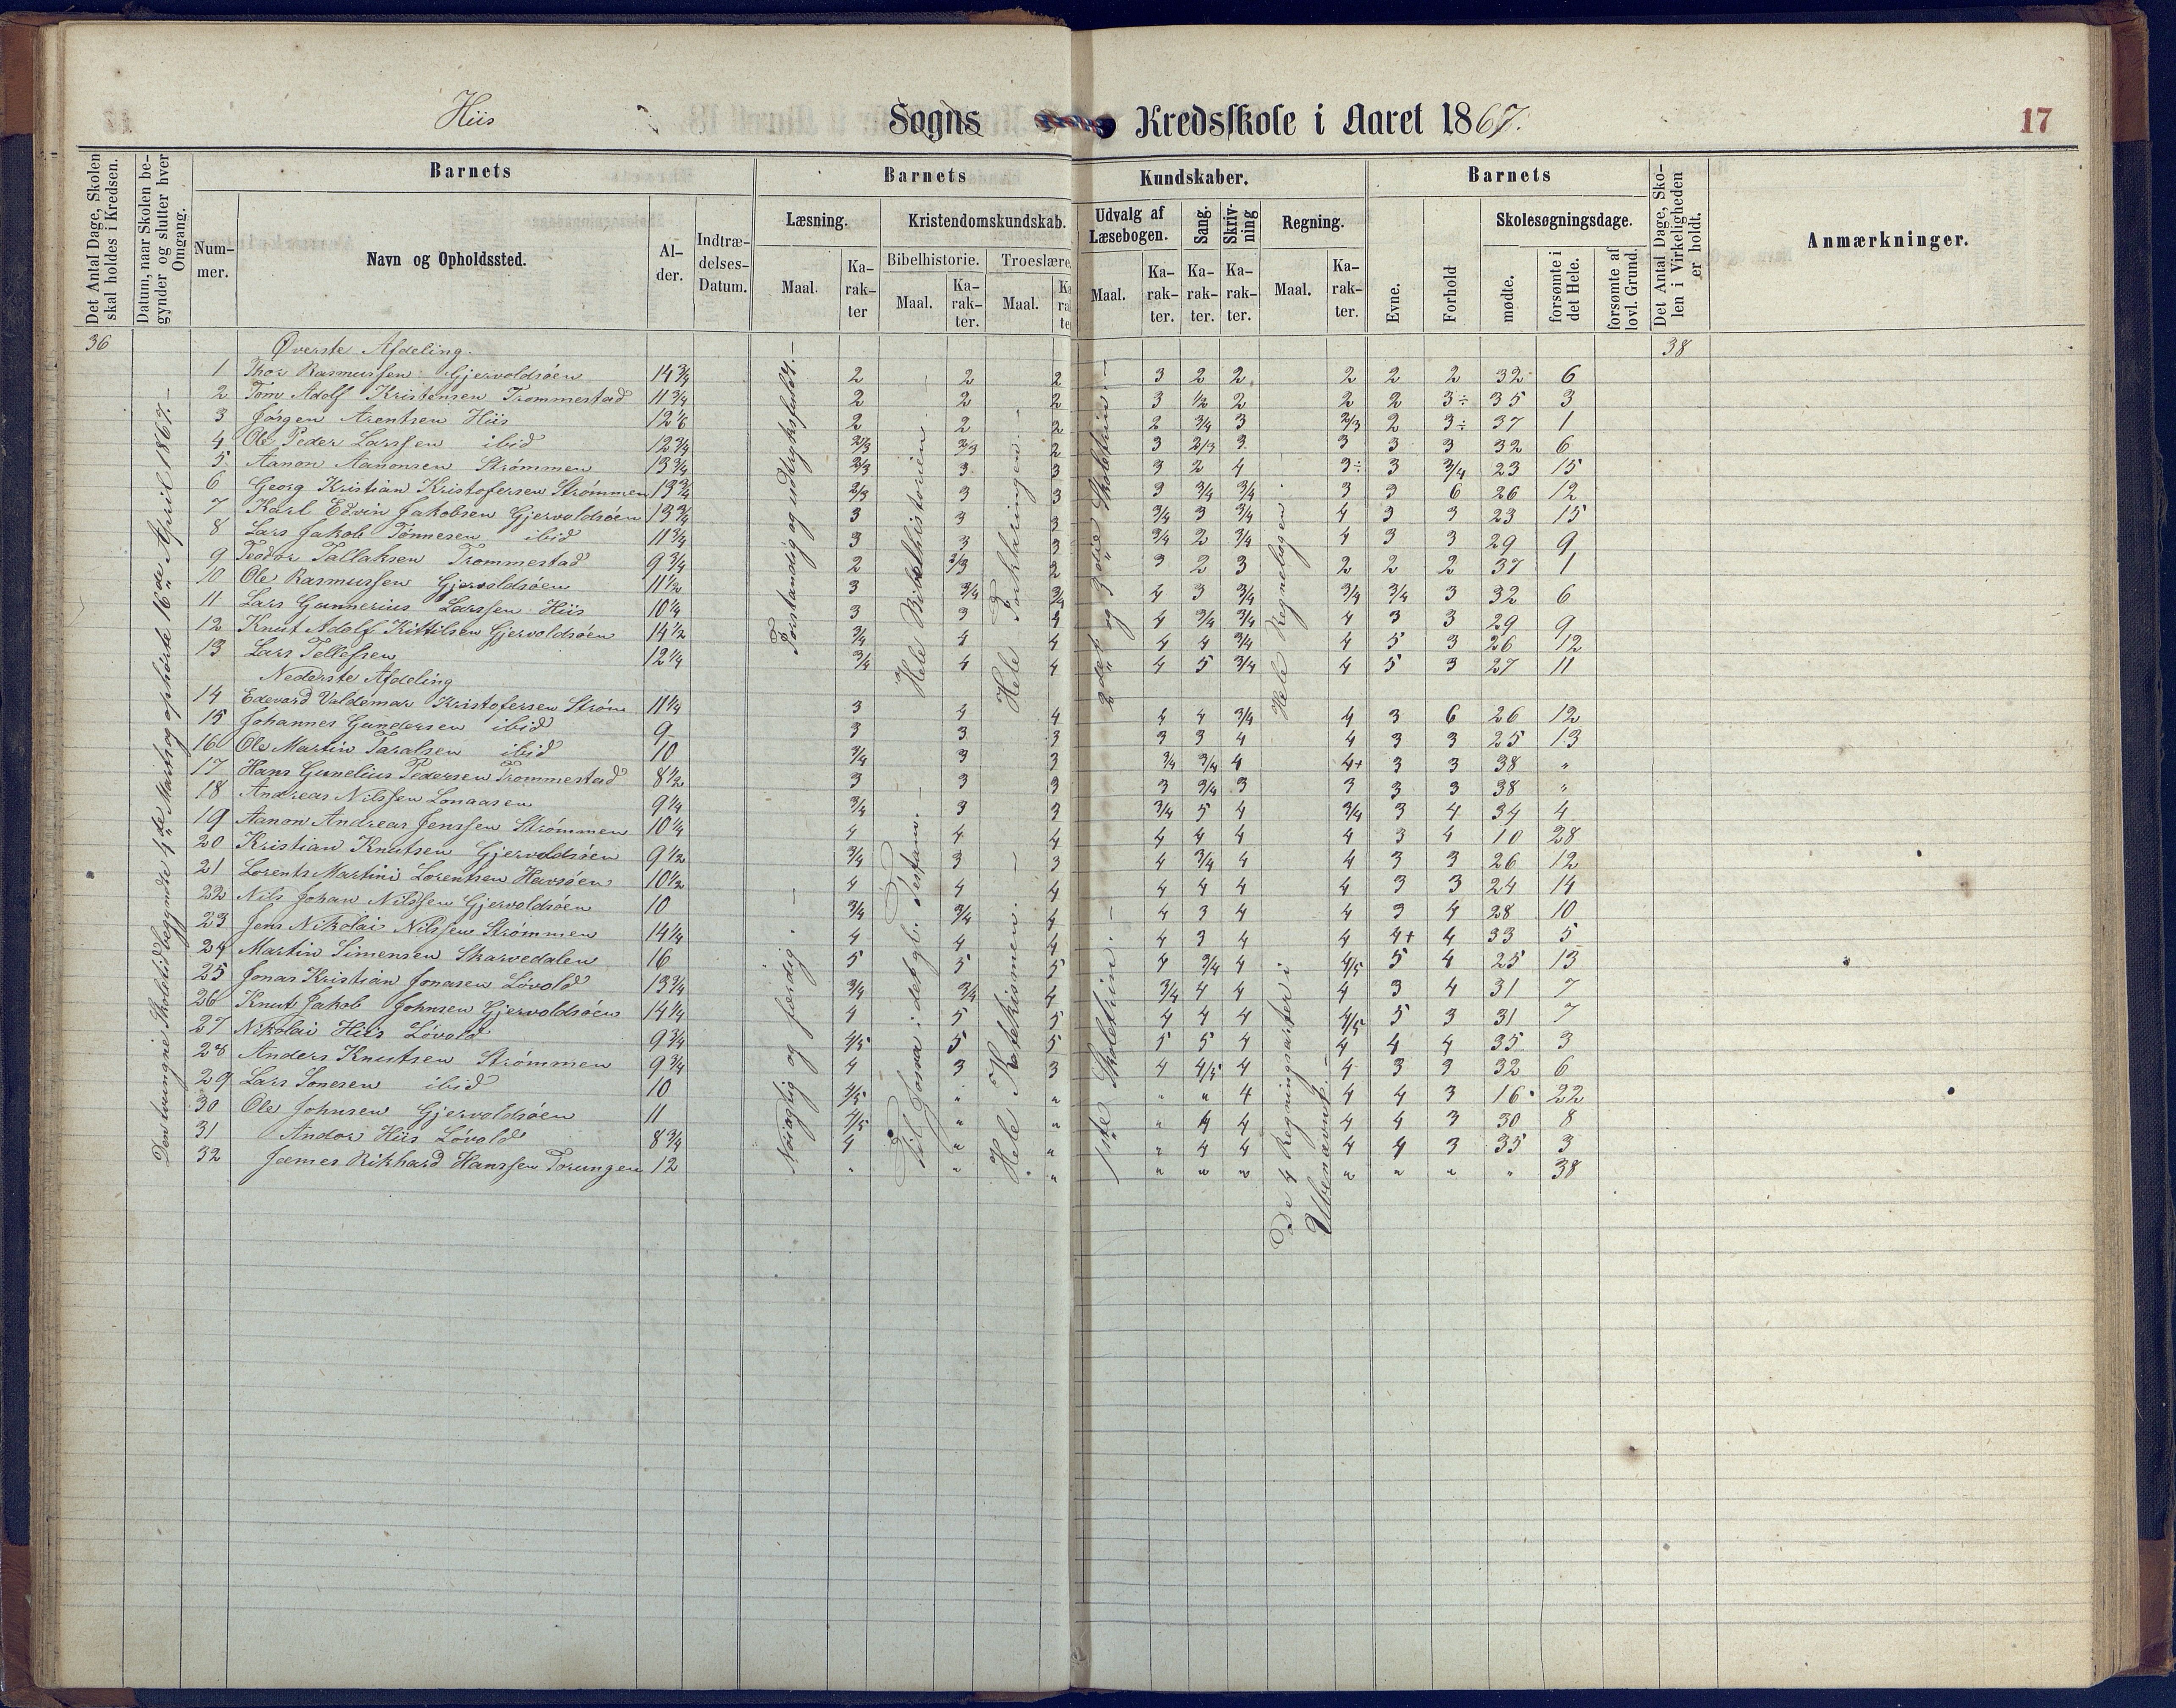 Hiis Sogns Kredsskole i Aaret 1867. 17
Det Antal Dage, Skolen skal holdes i Kredsen.
Datum, naar Skolen begynder og slutter hver Omgang.
Barnets
Nummer.
Navn og Opholdssted.
Alder.
Indtrædelses-Datum.
Barnets Kundskaber.
Læsning.
Maal.
Karakter
Kristendomskundskab.
Bibelhistorie.
Maal.
Karakter.
Troeslære
Maal.
Udvalg af Læsebogen.
Maal.
Karakter.
Sang.
Karakter.
Skrivning
Karakter.
Regning.
Maal.
Karakter.
Barnets
Evne.
Forhold
Skolesøgningsdage.
mødte.
forsømte i det Hele.
forsømte af lovl. Grund.
Det Antal Dage, Skolen i Virkeligheden er holdt.
Anmærkninger.
36 Øverste Afdeling. 38
1 Thor Rasmussen Gjervoldsøen 14 3/4 2 2 2 3 2 2 2 2 2 32 6
2 Tom Adolf Kristensen Trommestad 11 3/4 2 2 2 3 1/2 2 2 2 3÷ 35 3
3 Jørgen Arentsen Hiis 12 1/6 2 2 2 2 3/4 3 2/3 2 3÷ 37 1
4 Ole Peder Larssen ibid 12 3/4 2/3 2/3 2 3 2/3 3 3 3 3 32 6
5 Aanon Aanonsen Strømmen 13 3/4 2/3 3 3 3 2 4 3÷ 3 3/4 23 15
6 Georg Kristian Kristofersen Strømmen 13 3/4 2/3 3 3 3 3/4 3/4 3 3 6 26 12
7 Karl Edvin Jakobsen Gjervoldsøen 13 3/4 3 3 3 3/4 3 3/4 4 3 3 23 15
8 Lars Jakob Tønnesen ibid 11 3/4 3 3 3 3/4 2 3/4 4 3 3 29 9
9 Teodor Tallaksen Trommestad 9 3/4 2 2/3 2 3 2 3 2 2 2 37 1
10 Ole Rasmussen Gjervoldsøen 11 1/2 3 3/4 3/4 4 3 3/4 3/4 3/4 3 32 6
11 Lars Gunnerius Larssen Hiis 10 1/4 3 3 4 4 3/4 3/4 4 3 3 29 9
12 Knut Adolf Kittilsen Gjervoldsøen 14 1/2 3/4 4 4 4 4 3/4 4 5 3 26 12
13 Lars Tellefsen 12 1/4 3/4 4 4 4 5 3/4 4 5 3 27 11
Nederste Afdeling
14 Edevard Valdemar Kristofersen Strøm 11 1/4 3 4 4 4 4 3/4 4 3 6 26 12
15 Johannes Gundersen ibid 9 3 3 3 3 3 4 4 3 3 25 13
16 Ole Martin Taralsen ibid 10 3/4 3 3 3/4 3/4 4 4+ 3 3 38 "
17 Hans Gunelius Pedersen Trommestad 8 1/2 3 3 3 3 3/4 3 3 3 3 38 "
18 Andreas Nilssen Longaasen 9 1/4 3/4 3 3 3/4 5 4 3/4 3 4 34 4
19 Aanon Andreas Jenssen Strømmen 10 1/4 4 4 4 4 4 4 4 3 4 10 28
20 Kristian Knutsen Gjervoldsøen 9 1/2 3/4 3 3 4 3/4 4 4 3 3 26 12
21 Lorents Martini Lorentsen Havsøen 10 1/2 4 4 4 4 4 4 4 3 3 24 14
22 Nils Johan Nilssen Gjervoldsøen 10 3/4 3/4 4 4 3 4 4 3 4 28 10
23 Jens Nikolai Nilssen Strømmen 14 1/4 4 4 4 4 3 4 4 4+ 4 33 5
24 Martin Simensen Skarvedalen 16 5 5 5 4 3/4 4 4/5 5 4 25 13
25 Jonas Kristian Jonasen Løvold 13 3/4 3/4 3/4 4 3/4 4 4 4 3 4 31 7
26 Knut Jakob Johnsen Gjervoldsøen 14 1/4 4 5 5 4 4 4 4/5 5 3 31 7
27 Nikolai Hiis Løvold 9 3/4 4/5 5 5 5 5 4 4 4 4 35 3
28 Anders Knutsen Strømmen 9 3/4 4 3 3 4 4/5 4 4 3 3 32 6
29 Lars Sonesen ibid 10 4/5 " " " " 4 4 4 3 16 22
30 Ole Johnsen Gjervoldsøen 11 4/5 " " " 4 4 4 4 3 30 8
31 Andor Hiis Løvold 8 3/4 4 " " " 4 4 4 4 3 35 3
32 James Rikhard Hanssen Torungen 12 " " " " " " " " " " 38
Den tvungne Skoletid begyndte 4de Marts og ophørte 16de April 1867.
Forstandig og udtryksfuldt.
Hele Bibelhistorien
Hele Forklaringen
2det og 3die Skoletrin
Hele Regnebogen
Nøiagtig og færdig.
Til Josva i det gl. Testam.
Hele Katekismen.
1ste Skoletrin.
De 4 Regningsarter i Ubenævnt.